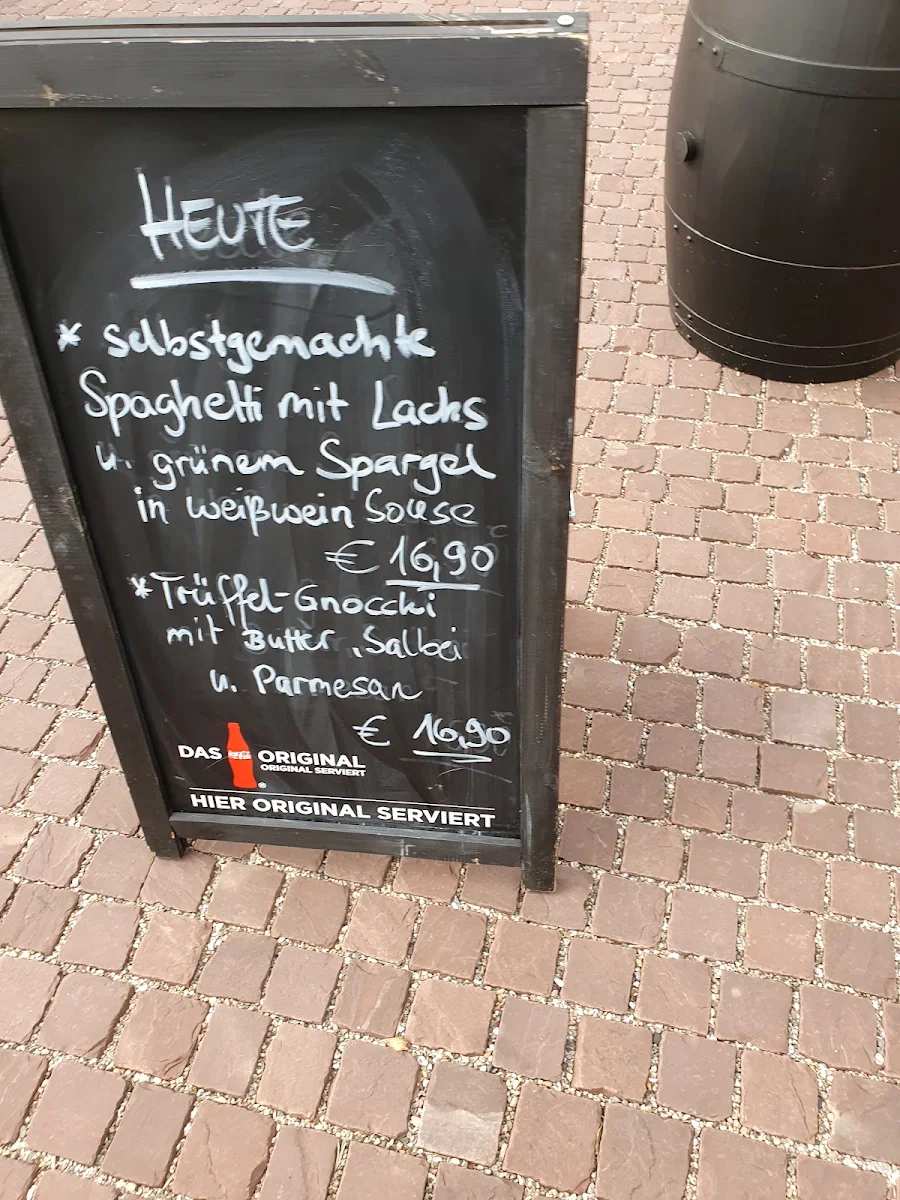 HEUTE
* selbstgemachte
Spaghetti mit Lachs
u. grünem Spargel
in weißwein Souse
€ 16,90
* Trüffel-Gnoccki
mit Butter, Salbei
u. Parmesan
€ 16,90
DAS Coca-Cola ORIGINAL
ORIGINAL SERVIERT
HIER ORIGINAL SERVIERT